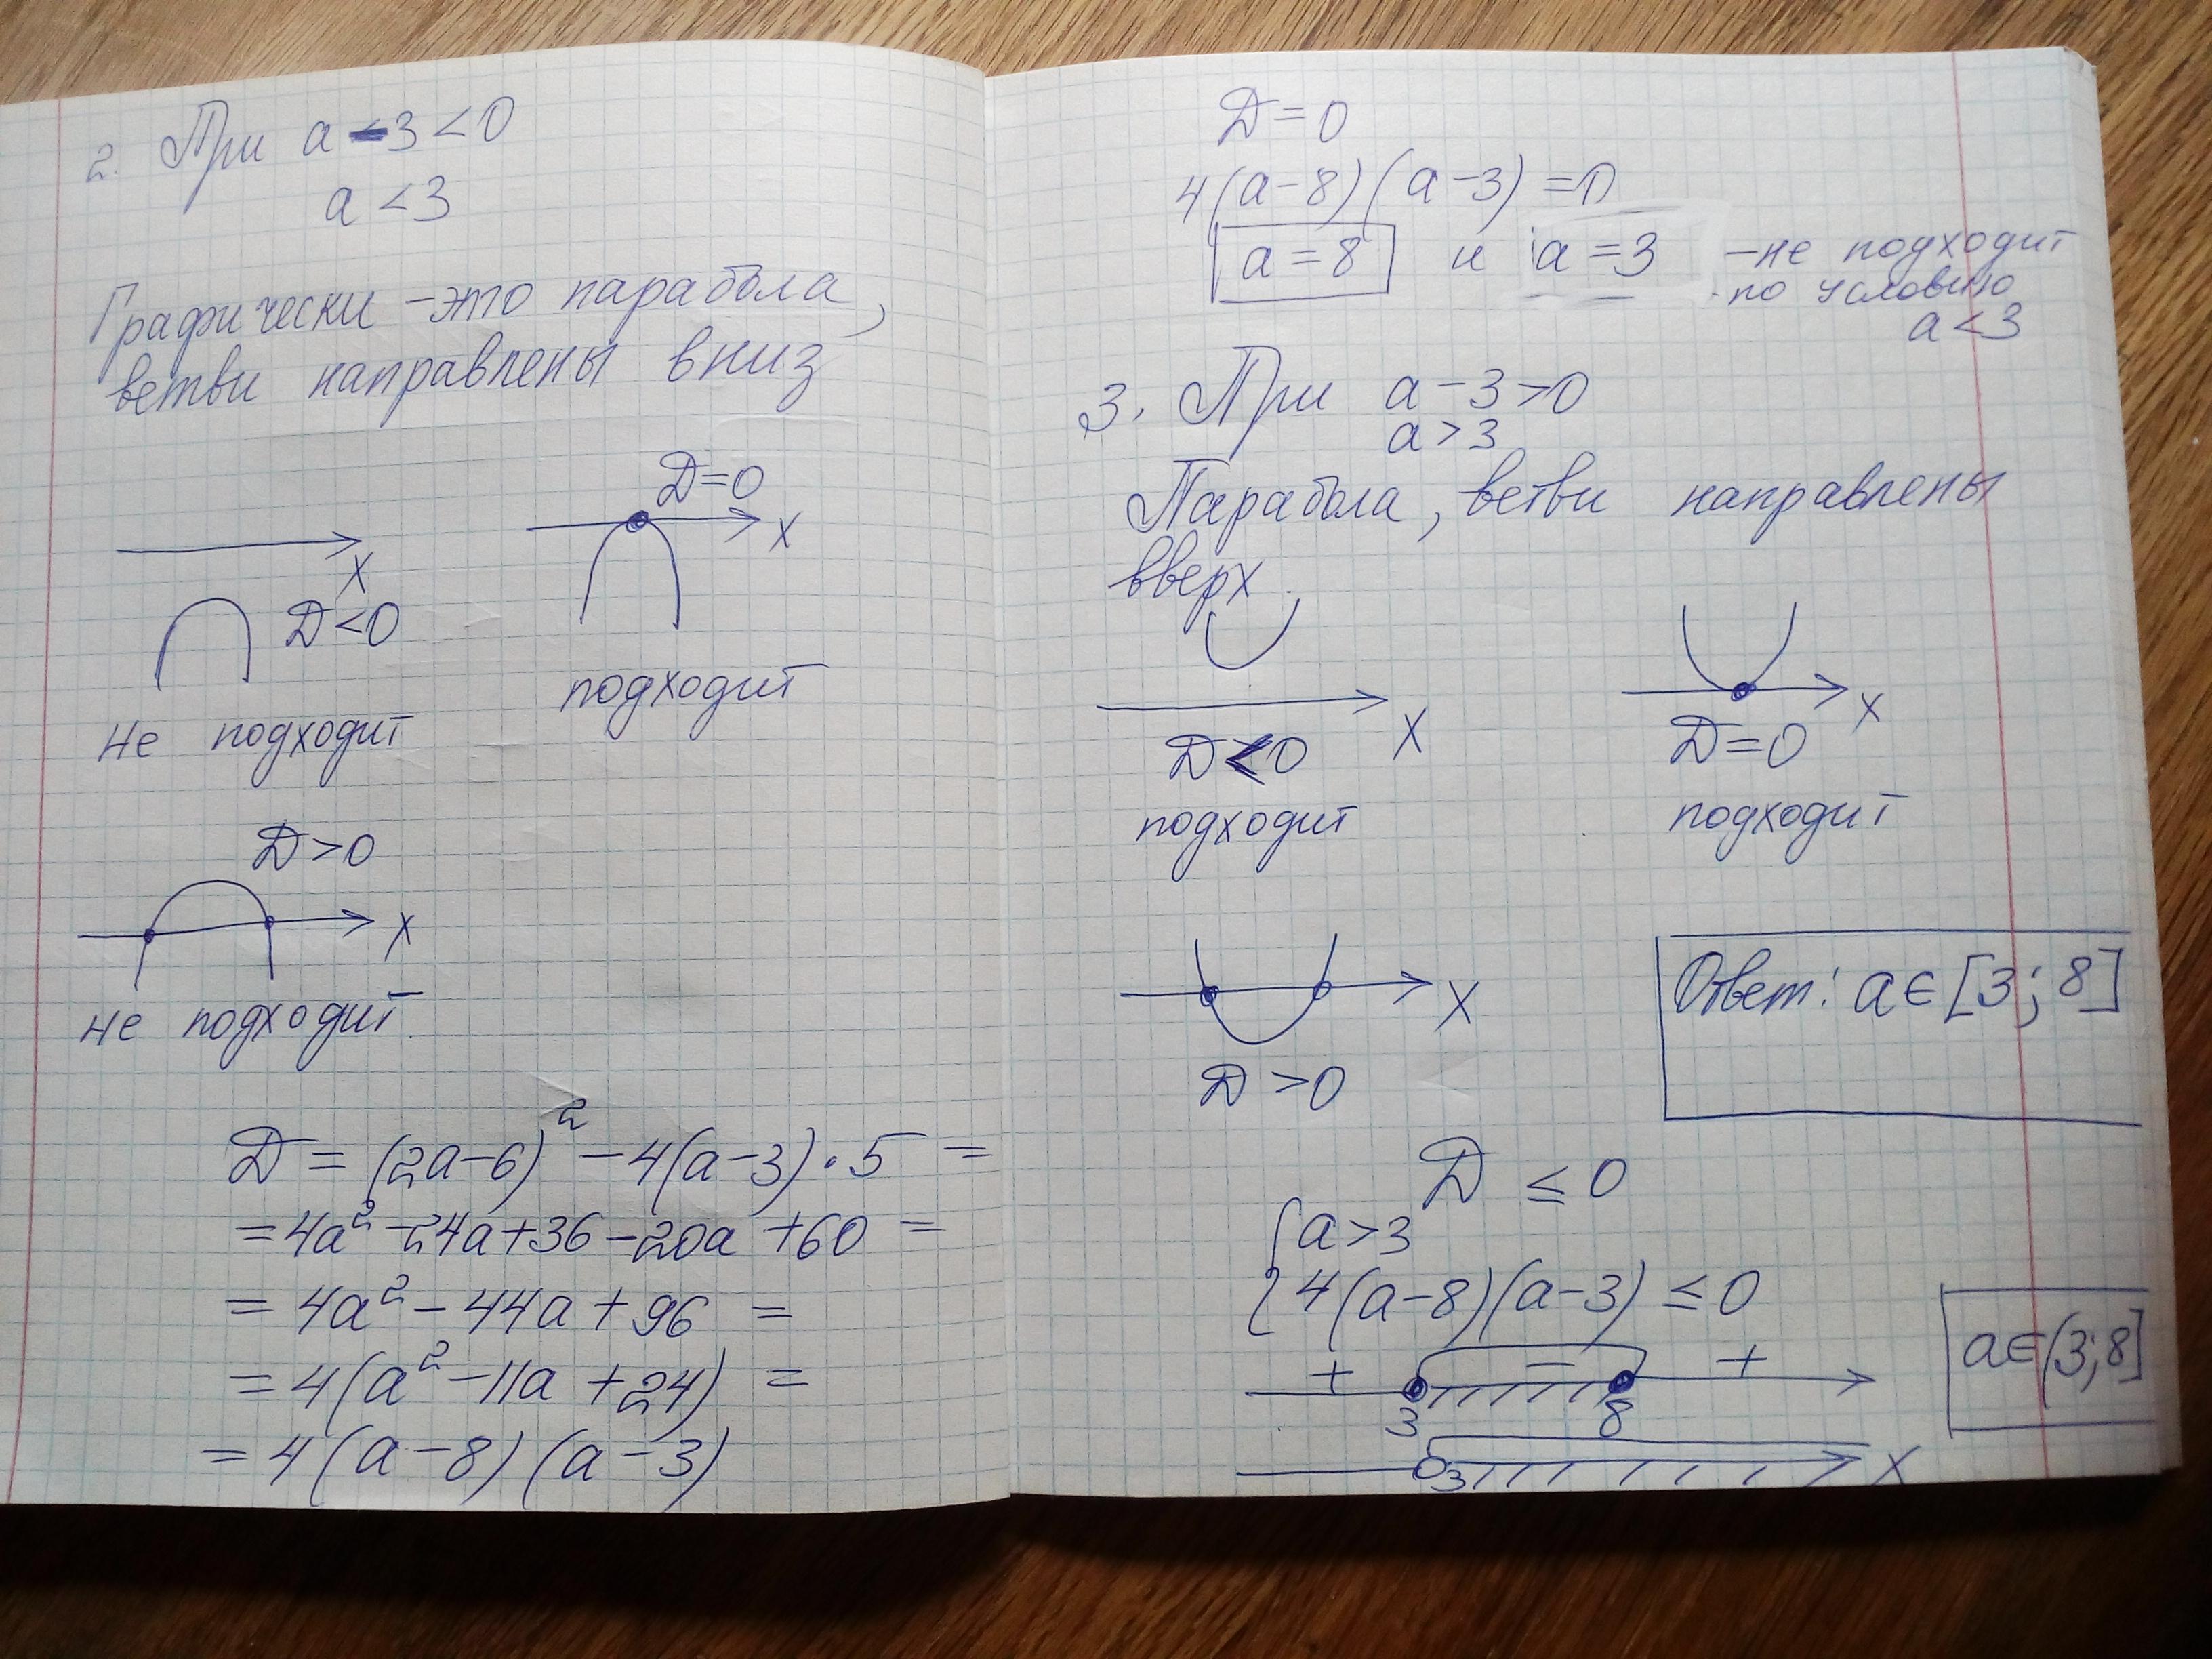 2. При a - 3 < 0
a < 3
Графически - это парабола,
ветви направлены вниз
x
D < 0
не подходит
D = 0
x
подходит
D > 0
x
не подходит
D = (2a-6)² - 4(a-3)·5 =
= 4a² - 24a + 36 - 20a + 60 =
= 4a² - 44a + 96 =
= 4(a² - 11a + 24) =
= 4(a-8)(a-3)
D = 0
4(a-8)(a-3) = 0
a = 8 и a = 3 - не подходит
по условию
a < 3
3. При a - 3 > 0
a > 3
Парабола, ветви направлены
вверх.
x
D < 0
подходит
x
D = 0
подходит
x
D > 0
Ответ: a ∈ [3; 8]
D ≤ 0
{ a > 3
4(a-8)(a-3) ≤ 0
+ − +
3 8
3 x
a ∈ (3; 8]